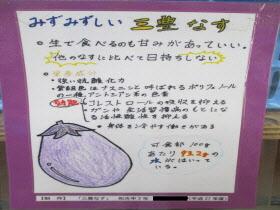 みずみずしい 三豊 なす
・生で食べるのも甘みがあっていい。
他のなすに比べて日持ちしない
・栄養成分
・強い抗酸化力
・紫紺色はナスニンと呼ばれるポリフェノール
の一種 アントシアン系の色素
効能
コレストロールの吸収を抑える
ガンや
活性酸性を抑える
・身体を冷やす働きがある
可食部 100g
あたり 93.2gの
水がはいって
いる。
「三豊なす」